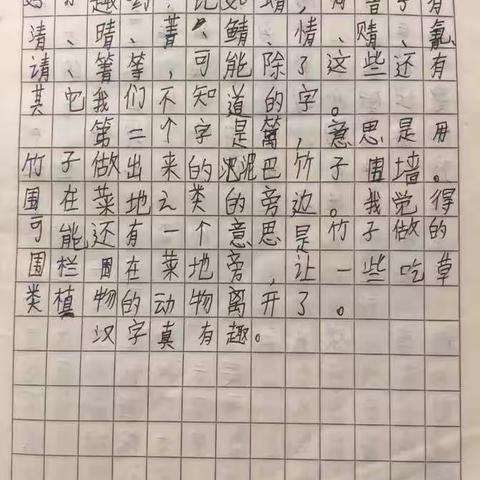 好有趣的！比如靖，有青字有
清、晴、菁、鲭、情、睛、氰、
请、箐等，可能除了这些还有
其它我们不知道的字。
第二个字是篱，意思是用
竹子做出来的泥巴竹子围墙。
围在菜地之类的旁边。我觉得
可能还有一个意思是竹子做的
围栏围在菜地旁，让一些吃草
类植物的动物离开了。
汉字真有趣。